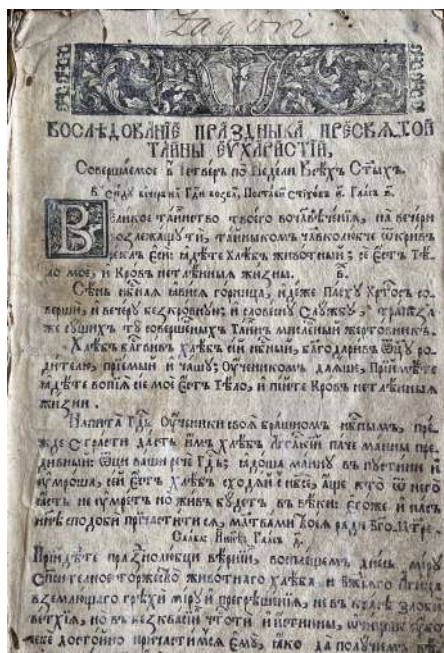 Zagori
ВОСЛѢДОВАНІЕ ПРАЗДНИКА ПРЕСВЯТОЙ
ТАЙНЫ ЕУХАРИСТІЙ,
Совершаемое в Четвер по Недели Всѣхъ Ст҃ыхъ.
В Среду вечеръ на Гд҃и возва, Поставй Стіховъ и҃. Гласъ и҃.
Великое таинство твоего воч҃лвѣченія, на вечери
возлежащу ти, тайникомъ чл҃веколюбче ѿкривъ
рекла еси: ядѣте Хлѣбъ животный; се естъ Тѣ-
ло мое, и Кровъ нетлѣнныя жизны. в҃.
Сѣнь нб҃ная явися горница, идеже Пасху Хр҃тосъ со-
верши, и вечеру безкровную: и словесну Службу,
же сущихъ ту совершеныхъ Таинъ мисленый жертовникъ.
Хлѣбъ бл҃гвивъ хлѣбъ сій нб҃ный, благодаривъ Ѿцу ро-
дителю, пріемый и чашу; Оученикомъ даяше, Пріймѣте
ядѣте вопія сіе мое естъ Тѣло, и пійте Кровъ нетлѣнныя
жизни.
Напита Гд҃ь Оученики своя брашномъ нб҃нымъ, пре-
жде Страсти дастъ имъ хлѣбъ Агг҃лскій паче манны пре-
дивныи: Ѿци ваши рече Гд҃ь: ядоша манну въ пустини и
оумроша, сей естъ хлѣбъ сходяй с нб҃се, аще кто ѿ него
ястъ не оумретъ но живъ будетъ въ вѣки: Егоже и насъ
нн҃ѣ сподоби причаститися, мл҃твами
Слава: Ины҃ѣ Гласъ д҃.
Пріидѣте празнолюбци вѣрніи, воспѣемъ днесь міру
Спасителное торжество животнаго хлѣба, и Бж҃іяго Агнца
вземлющаго грѣхи міру и прегрѣшенія, не въ квасѣ злобы
ветхія, но въ безквасіи ч҃тоти и истинны,
себе достойно причастимся Ему, яко да получимъ